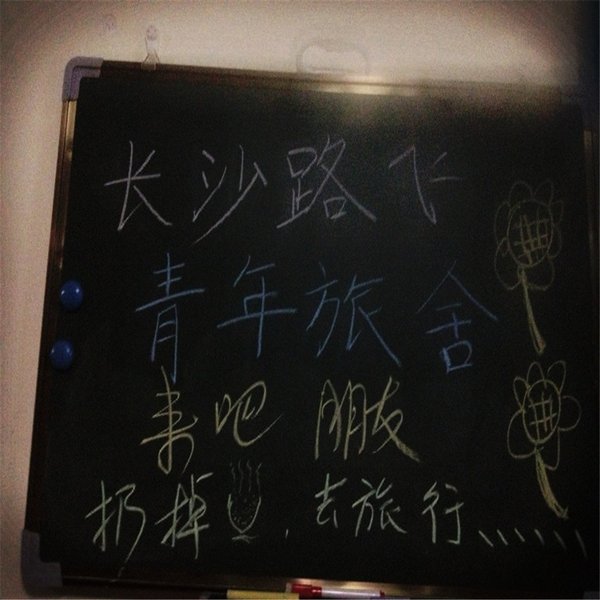 长沙路飞
青年旅舍
来吧 朋友
扔掉 , 去旅行、、、、、、